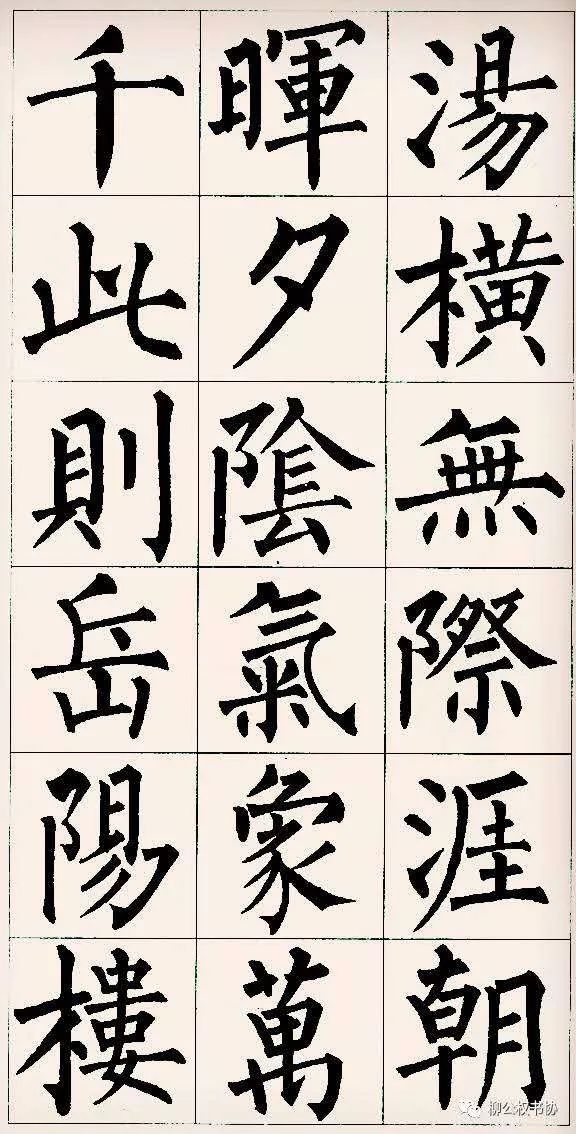 湯橫無際涯朝
暉夕陰氣象萬
千此則岳陽樓
柳公权书协